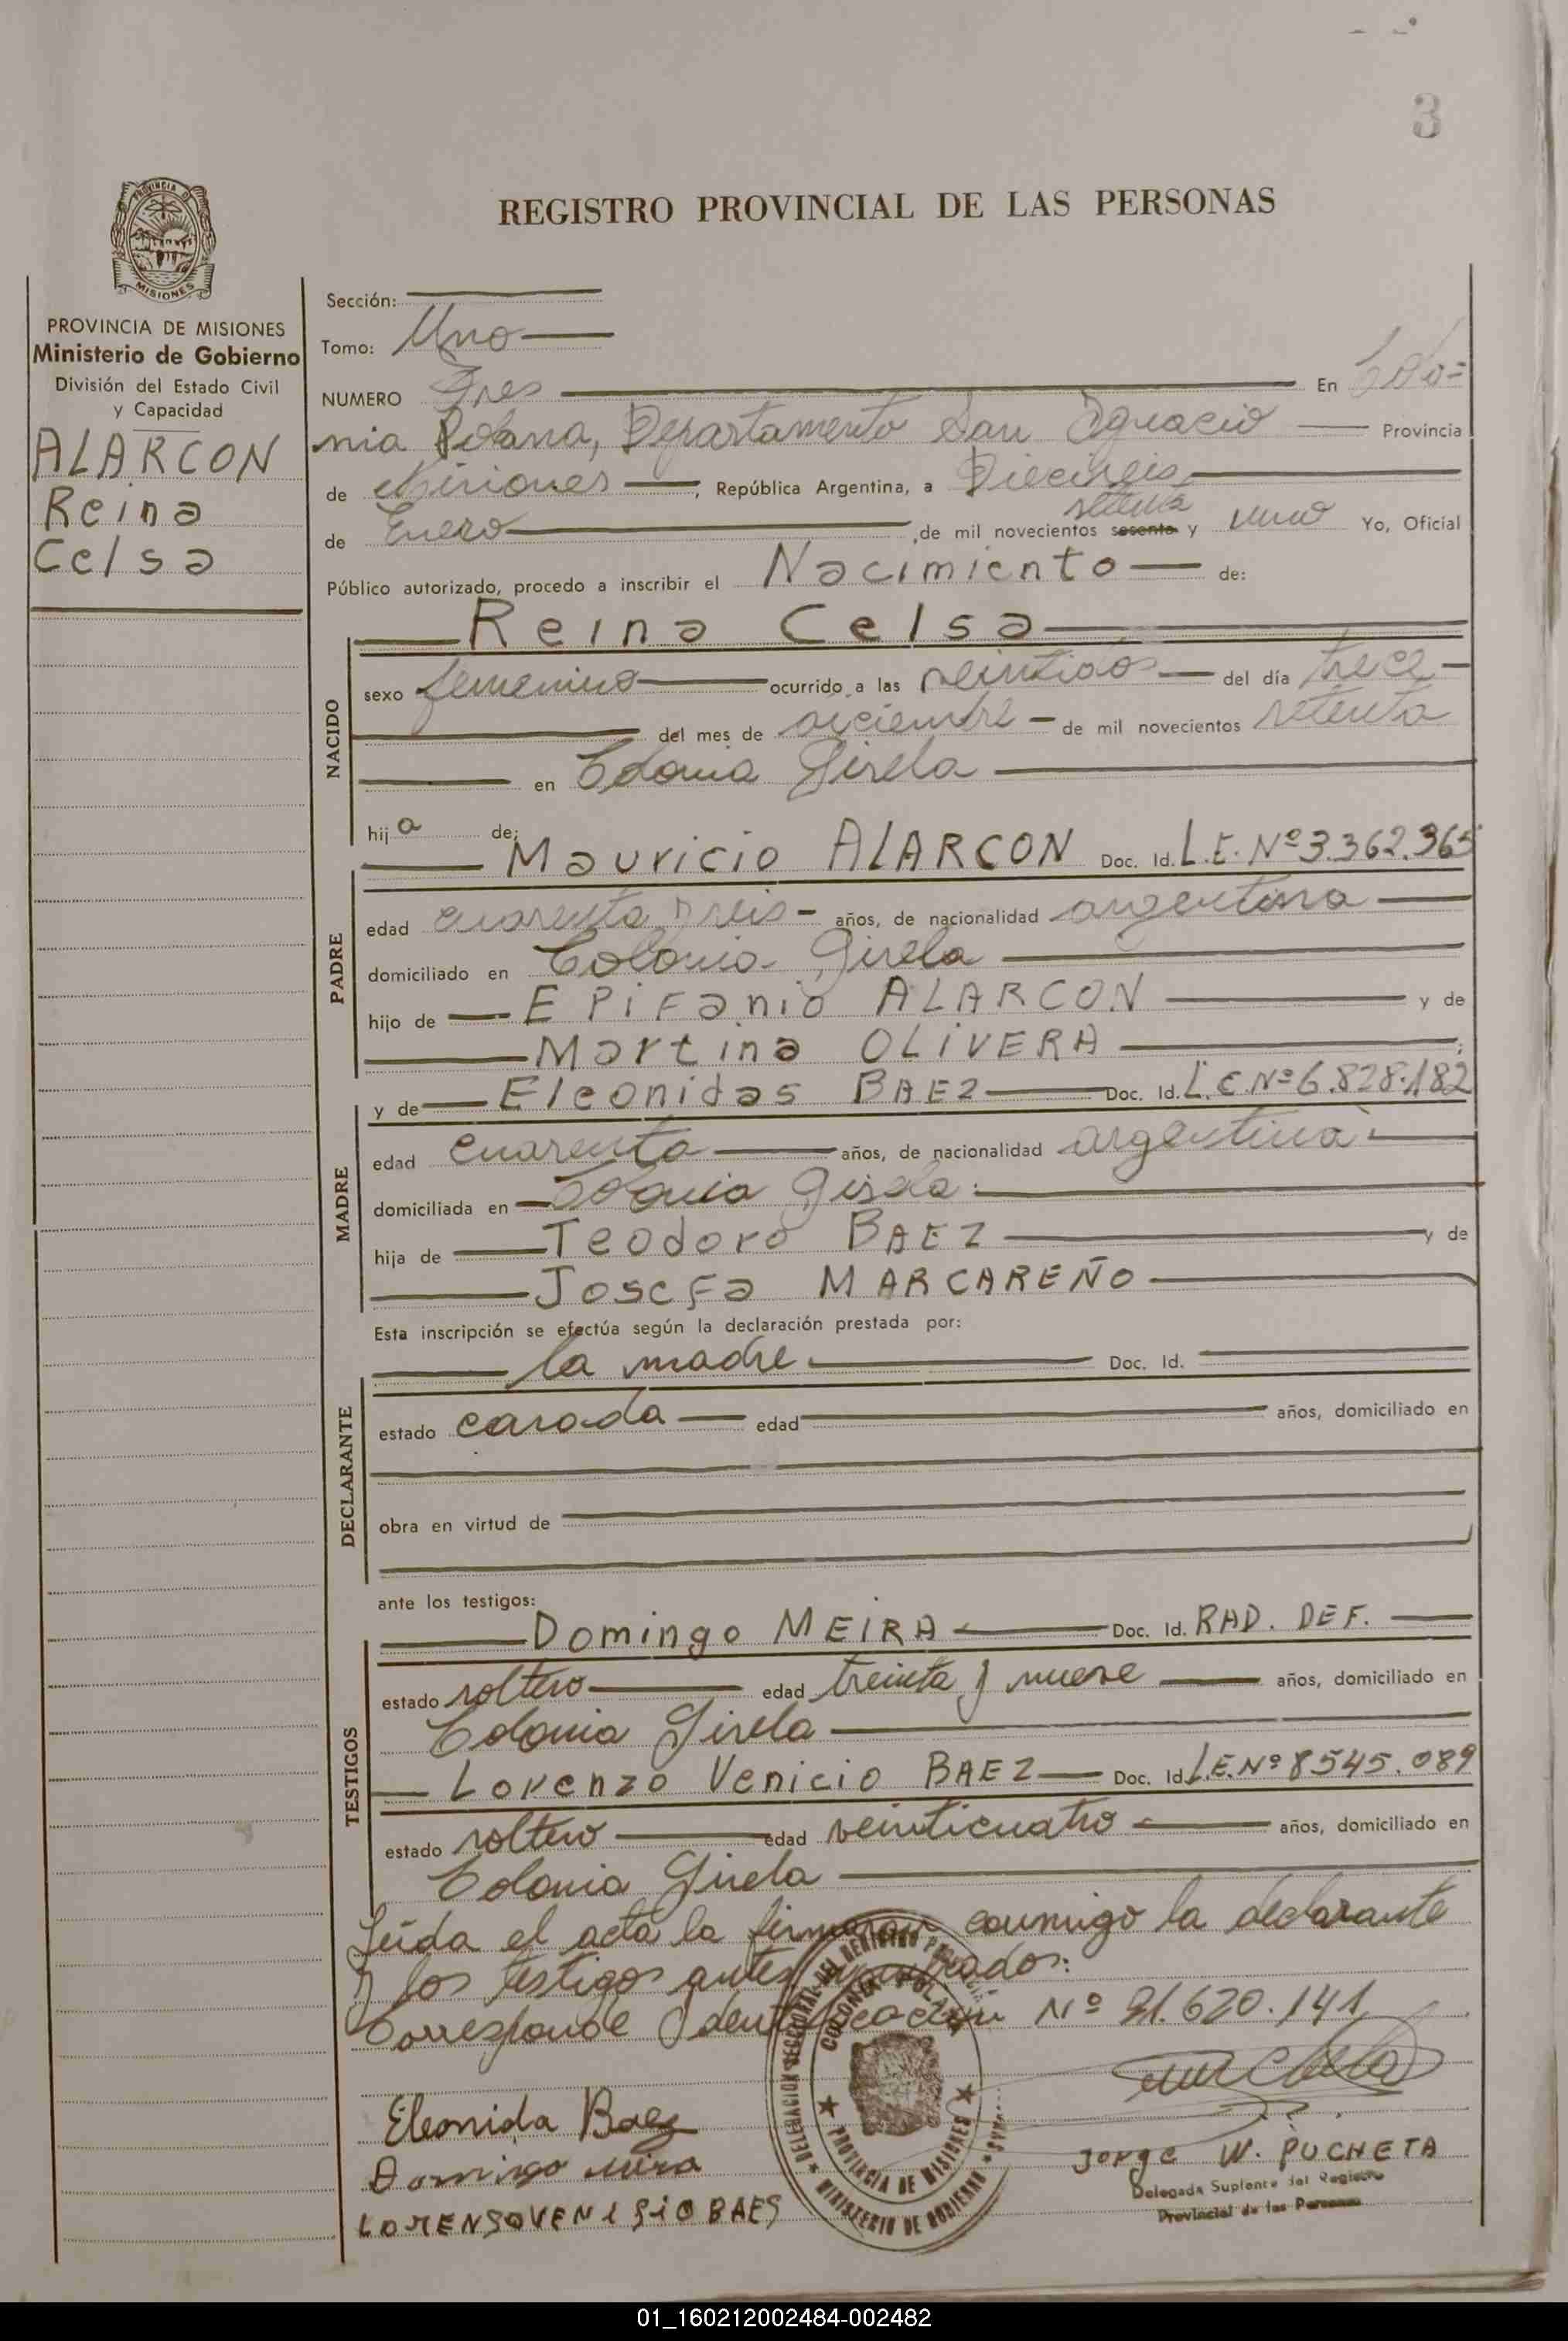 3
REGISTRO PROVINCIAL DE LAS PERSONAS
PROVINCIA DE
MISIONES
PROVINCIA DE MISIONES
Ministerio de Gobierno
División del Estado Civil
y Capacidad
ALARCON
Reina
Celsa
Sección:
Tomo: Uno
NUMERO Tres En Colo=
nia Polana, Departamento San Ignacio Provincia
de Misiones, República Argentina, a Dieciseis
setenta
de Enero, de mil novecientos sesenta y uno Yo, Oficial
Público autorizado, procedo a inscribir el Nacimiento de:
Reina Celsa
NACIDO
sexo femenino ocurrido a las veintidos del día trece
del mes de diciembre de mil novecientos setenta
en Colonia Gisela
hija de:
Mauricio ALARCON Doc. Id. L.E. Nº 3.362.365
PADRE
edad cuarenta y seis años, de nacionalidad argentina
domiciliado en Colonia Gisela
hijo de EPiFanio ALARCON y de
Martina OLiVERA ;
y de Eleonidas BAEZ Doc. Id. L.C. Nº 6.828.182
MADRE
edad cuarenta años, de nacionalidad argentina
domiciliada en Colonia Gisela
hija de Teodoro BAEZ y de
JoseFa MARCAREÑO
Esta inscripción se efectúa según la declaración prestada por:
la madre Doc. Id.
DECLARANTE
estado casada edad años, domiciliado en
obra en virtud de
ante los testigos:
Domingo MEIRA Doc. Id. RAD. DEF.
TESTIGOS
estado soltero edad treinta y nueve años, domiciliado en
Colonia Gisela
Lorenzo Venicio BAEZ Doc. Id. L.E. Nº 8545.089
estado soltero edad veinticuatro años, domiciliado en
Colonia Gisela
Leída el acta la firmaron conmigo la declarante
y los testigos antes nombrados:
Corresponde Identificación Nº 21.620.141
DELEGACION SECCIONAL DEL REGISTRO
COLONIA POLANA
PROVINCIA DE MISIONES
MINISTERIO DE GOBIERNO
Eleonida Baez
Domingo Mira
LORENSOVENISIOBAES
Jorge W. PUCHETA
Delegada Suplente del Registro
Provincial de las Personas
01_160212002484-002482